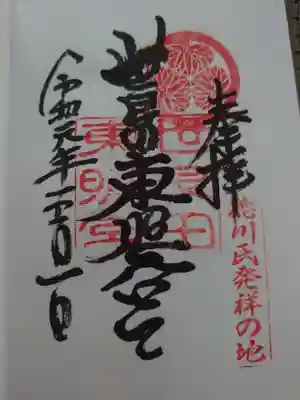 奉拝
徳川氏発祥の地
世良田東照宮
世良田
東照宮
令和元年 月一日